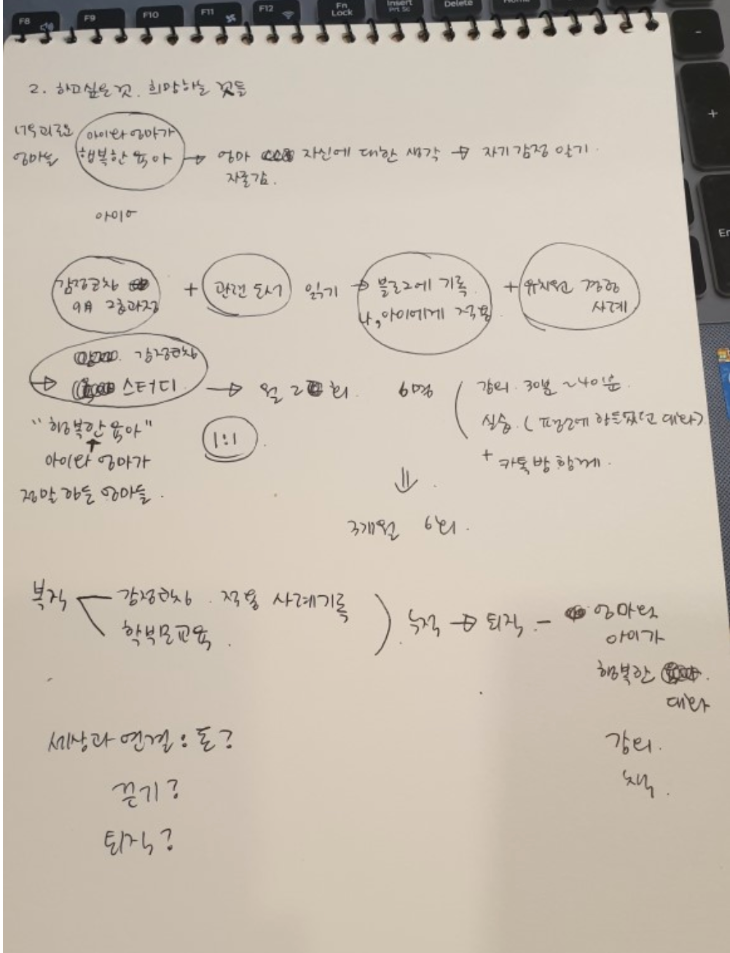 F8
F9
F10
F11
F12
Fn Lock
Insert
Prt Sc
Delete
2. 하고싶은것. 희망하는 것들
아이와 엄마가
엄마들 행복한 육아 → 엄마 자신에 대한 생각 → 자기감정 알기.
자존감.
아이
감정코칭 + 관련 도서 읽기 → 블로그에 기록 + 유치원 경험
2급과정 나, 아이에게 적용 사례
감정코칭
→ 스터디 → 월 2회 6명 강의. 30분 ~ 40분
"행복한 육아" 1:1 실습. (평소에 힘들었던 대화)
아이와 엄마가 + 카톡방 함께.
정말 힘든 엄마들.
⇓
3개월 6회.
복직 감정코칭. 적용 사례기록 축적 → 퇴직 - 엄마와
학부모교육. 아이가
행복한
대화
세상과 연결: 돈? 강의.
끈기? 책.
퇴직?